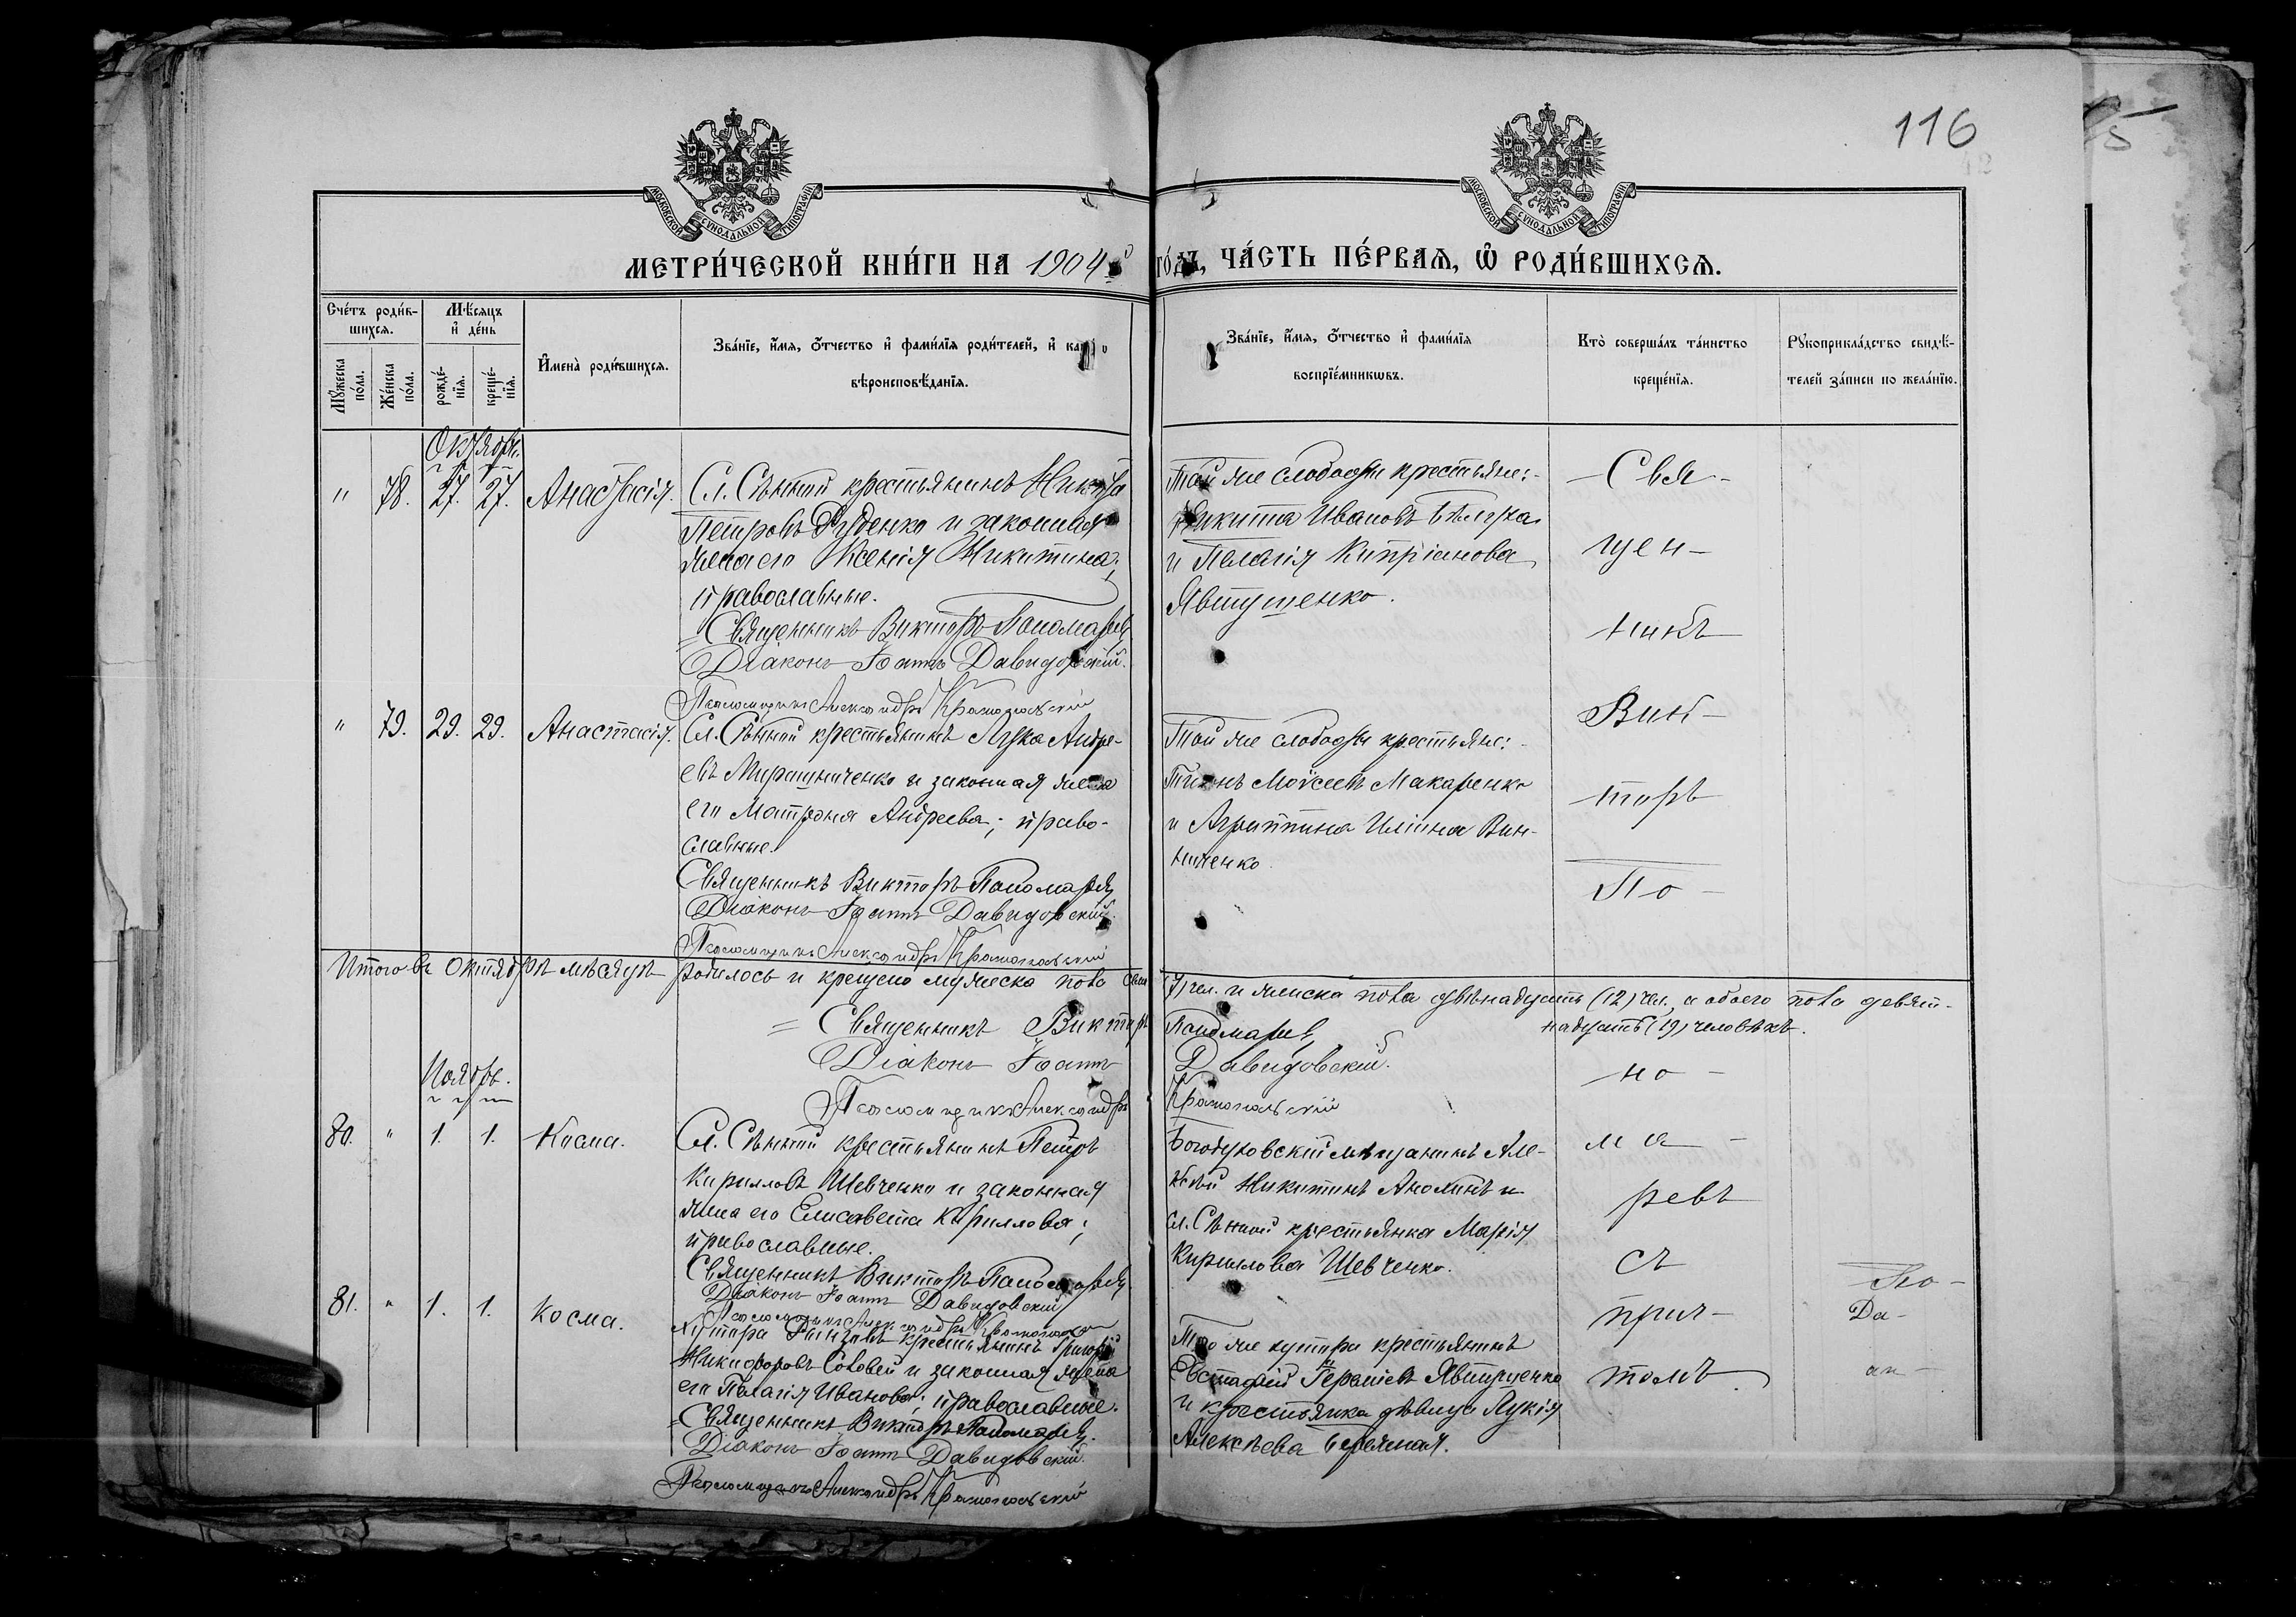 116
МОСКОВСКОЙ СѴНОДАЛЬНОЙ ТИПОГРАФІИ
МОСКОВСКОЙ СѴНОДАЛЬНОЙ ТИПОГРАФІИ
МЕТРИ́ЧЕСКОЙ КНИ́ГИ НА 1904й ГО́ДЪ, ЧА́СТЬ ПЕ́РВАѦ, Ѡ҆ РОДИ́ВШИХСѦ.
Сче́тъ роди́в-
шихсѧ.
Мꙋжеска
по́ла.
Же́нска
по́ла.
Мѣ́сѧцъ
и҆ де́нь
рожде́-
нїѧ.
креще́-
нїѧ.
И҆мена̀ роди́вшихсѧ.
Зва́нїе, и҆́мѧ, ѻ҆́тчество и҆ фами́лїѧ роди́телей, и҆
вѣроисповѣ́данїѧ.
Зва́нїе, и҆́мѧ, ѻ҆́тчество и҆ фами́лїѧ
воспрїе́мникѡвъ.
Кто̀ соверша́лъ та́инство
креще́нїѧ.
Рꙋкоприкла́дство свидѣ́-
телей за́писи по жела́нїю.
Октябрь.
" 78. 27. 27. Анастасія.
Сл. Сѣнной крестьянинъ Никита
Петровъ Руденко и законная
жена его Ксенія Никитина;
православные.
Священникъ Викторъ Пономаревъ
Діаконъ Іоаннъ Давидовскій.
Псаломщикъ Александръ
Той же слободы крестьяне:
Никита Ивановъ
и Пелагія Кипріанова
Явтушенко.
" 79. 29. 29. Анастасія.
Сл. Сѣнной крестьянинъ Лука Андре-
евъ Мирошниченко и законная жена
его Матрона Андреева; право-
славные.
Священникъ Викторъ Пономаревъ
Діаконъ Іоаннъ Давидовскій.
Псаломщикъ Александръ
Той же слободы крестьяне:
Тихонъ Моѵсеевъ Макаренко
и Агриппина Иліина Вин-
ниченко.
Итого въ Октябрѣ мѣсяцѣ родилось и крещено мужеска пола семь (7) чел. и женска пола двѣнадцать (12) чел., а обоего пола девят-
надцать (19) человѣкъ.
Священникъ Викторъ Пономаревъ
Діаконъ Іоаннъ Давидовскій.
Псаломщикъ Александръ
Ноябрь.
80. " 1. 1. Косма.
Сл. Сѣнной крестьянинъ Петръ
Кирилловъ Шевченко и законная
жена его Елисавета Кириллова;
православные.
Священникъ Викторъ Пономаревъ
Діаконъ Іоаннъ Давидовскій
Псаломщикъ Александръ
Богодуховскій мѣщанинъ Але-
ксѣй Никитинъ Анохинъ и
сл. Сѣнной крестьянка Марія
Кириллова Шевченко.
81. " 1. 1. Косма.
Хутора крестьянинъ Григорій
Никифоровъ Соловей и законная жена
его Пелагія Иванова; православные.
Священникъ Викторъ Пономаревъ.
Діаконъ Іоаннъ Давидовскій.
Псаломщикъ Александръ
Того же хутора крестьянинъ
Евстафій Явтушенко
и крестьянка дѣвица Лукія
Алексѣева Бережная.
Свя-
щен-
никъ
Вик-
торъ
По-
но-
ма-
ревъ
съ
прич-
томъ.
По-
Да-